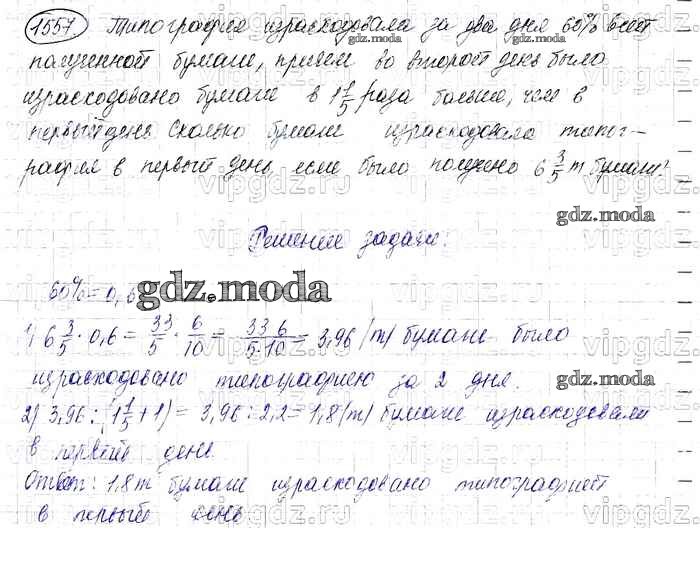 1557 Типография израсходовала за два дня 60% всей
полученной бумаги, причем во второй день было
израсходовано бумаги в 1 1/5 раза больше, чем в
первый день. Сколько бумаги израсходовала типог-
рафия в первый день, если было получено 6 3/5 т бумаги?
gdz.moda
Решение задачи.
60% = 0,6
gdz.moda
1) 6 3/5 · 0,6 = 33/5 · 6/10 = 33 6/5·10 = 3,96 (т) бумаги было
израсходовано типографиею за 2 дня.
gdz.moda
2) 3,96 : (1 1/5 + 1) = 3,96 : 2,2 = 1,8 (т) бумаги израсходовали
в первый день.
Ответ: 1,8 т бумаги израсходовано типографией
в первый день
gdz.moda
vipgdz.ru